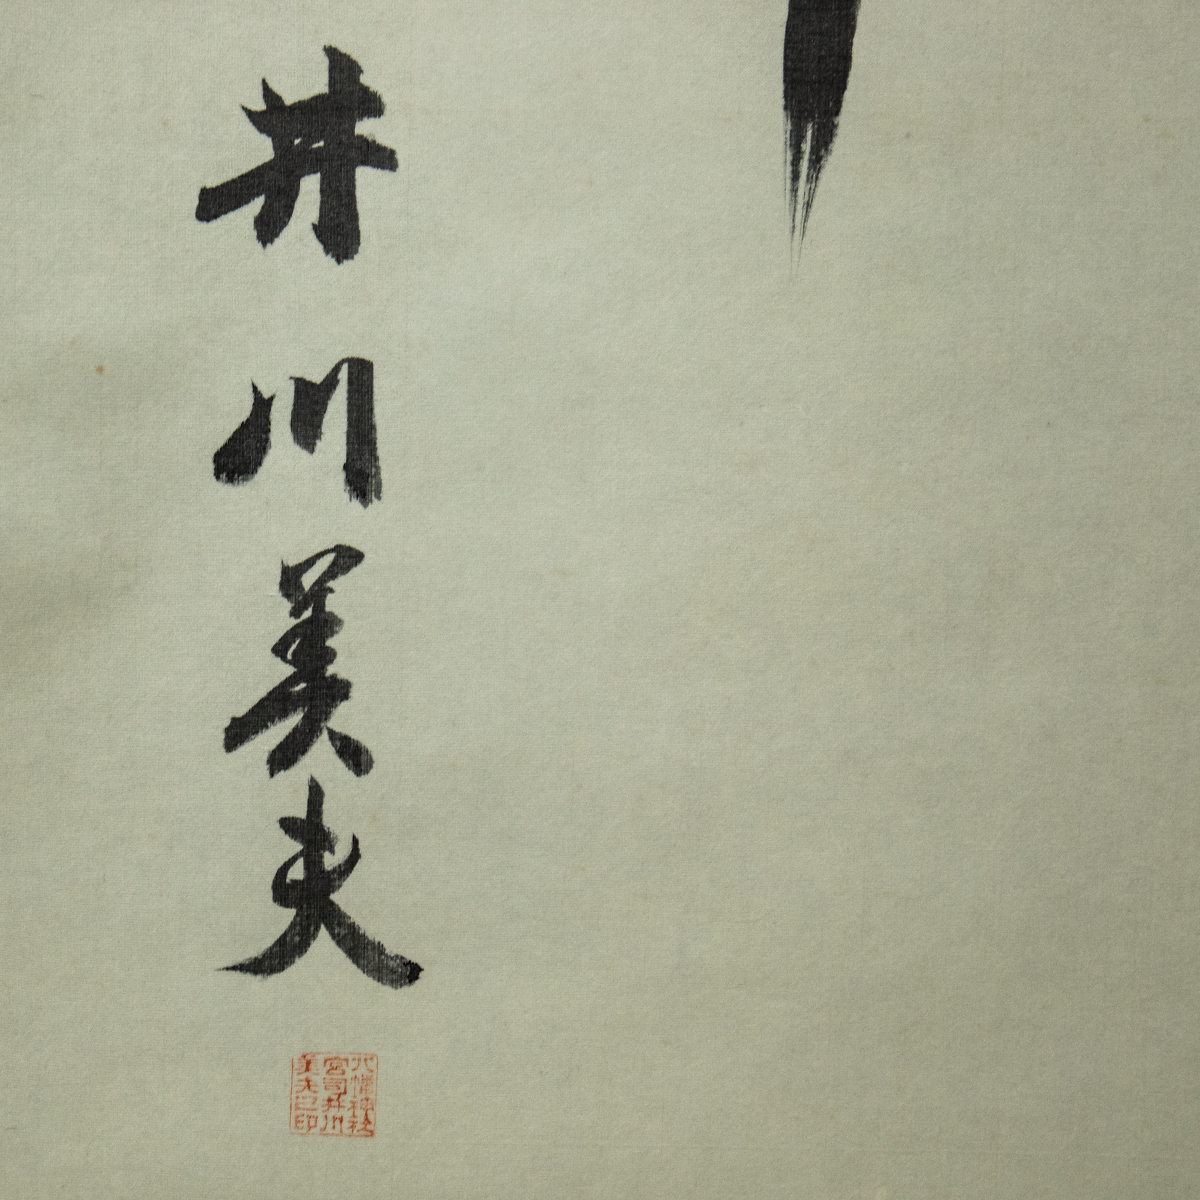 井川美夫
八幡神社
宮司井川
美夫之印